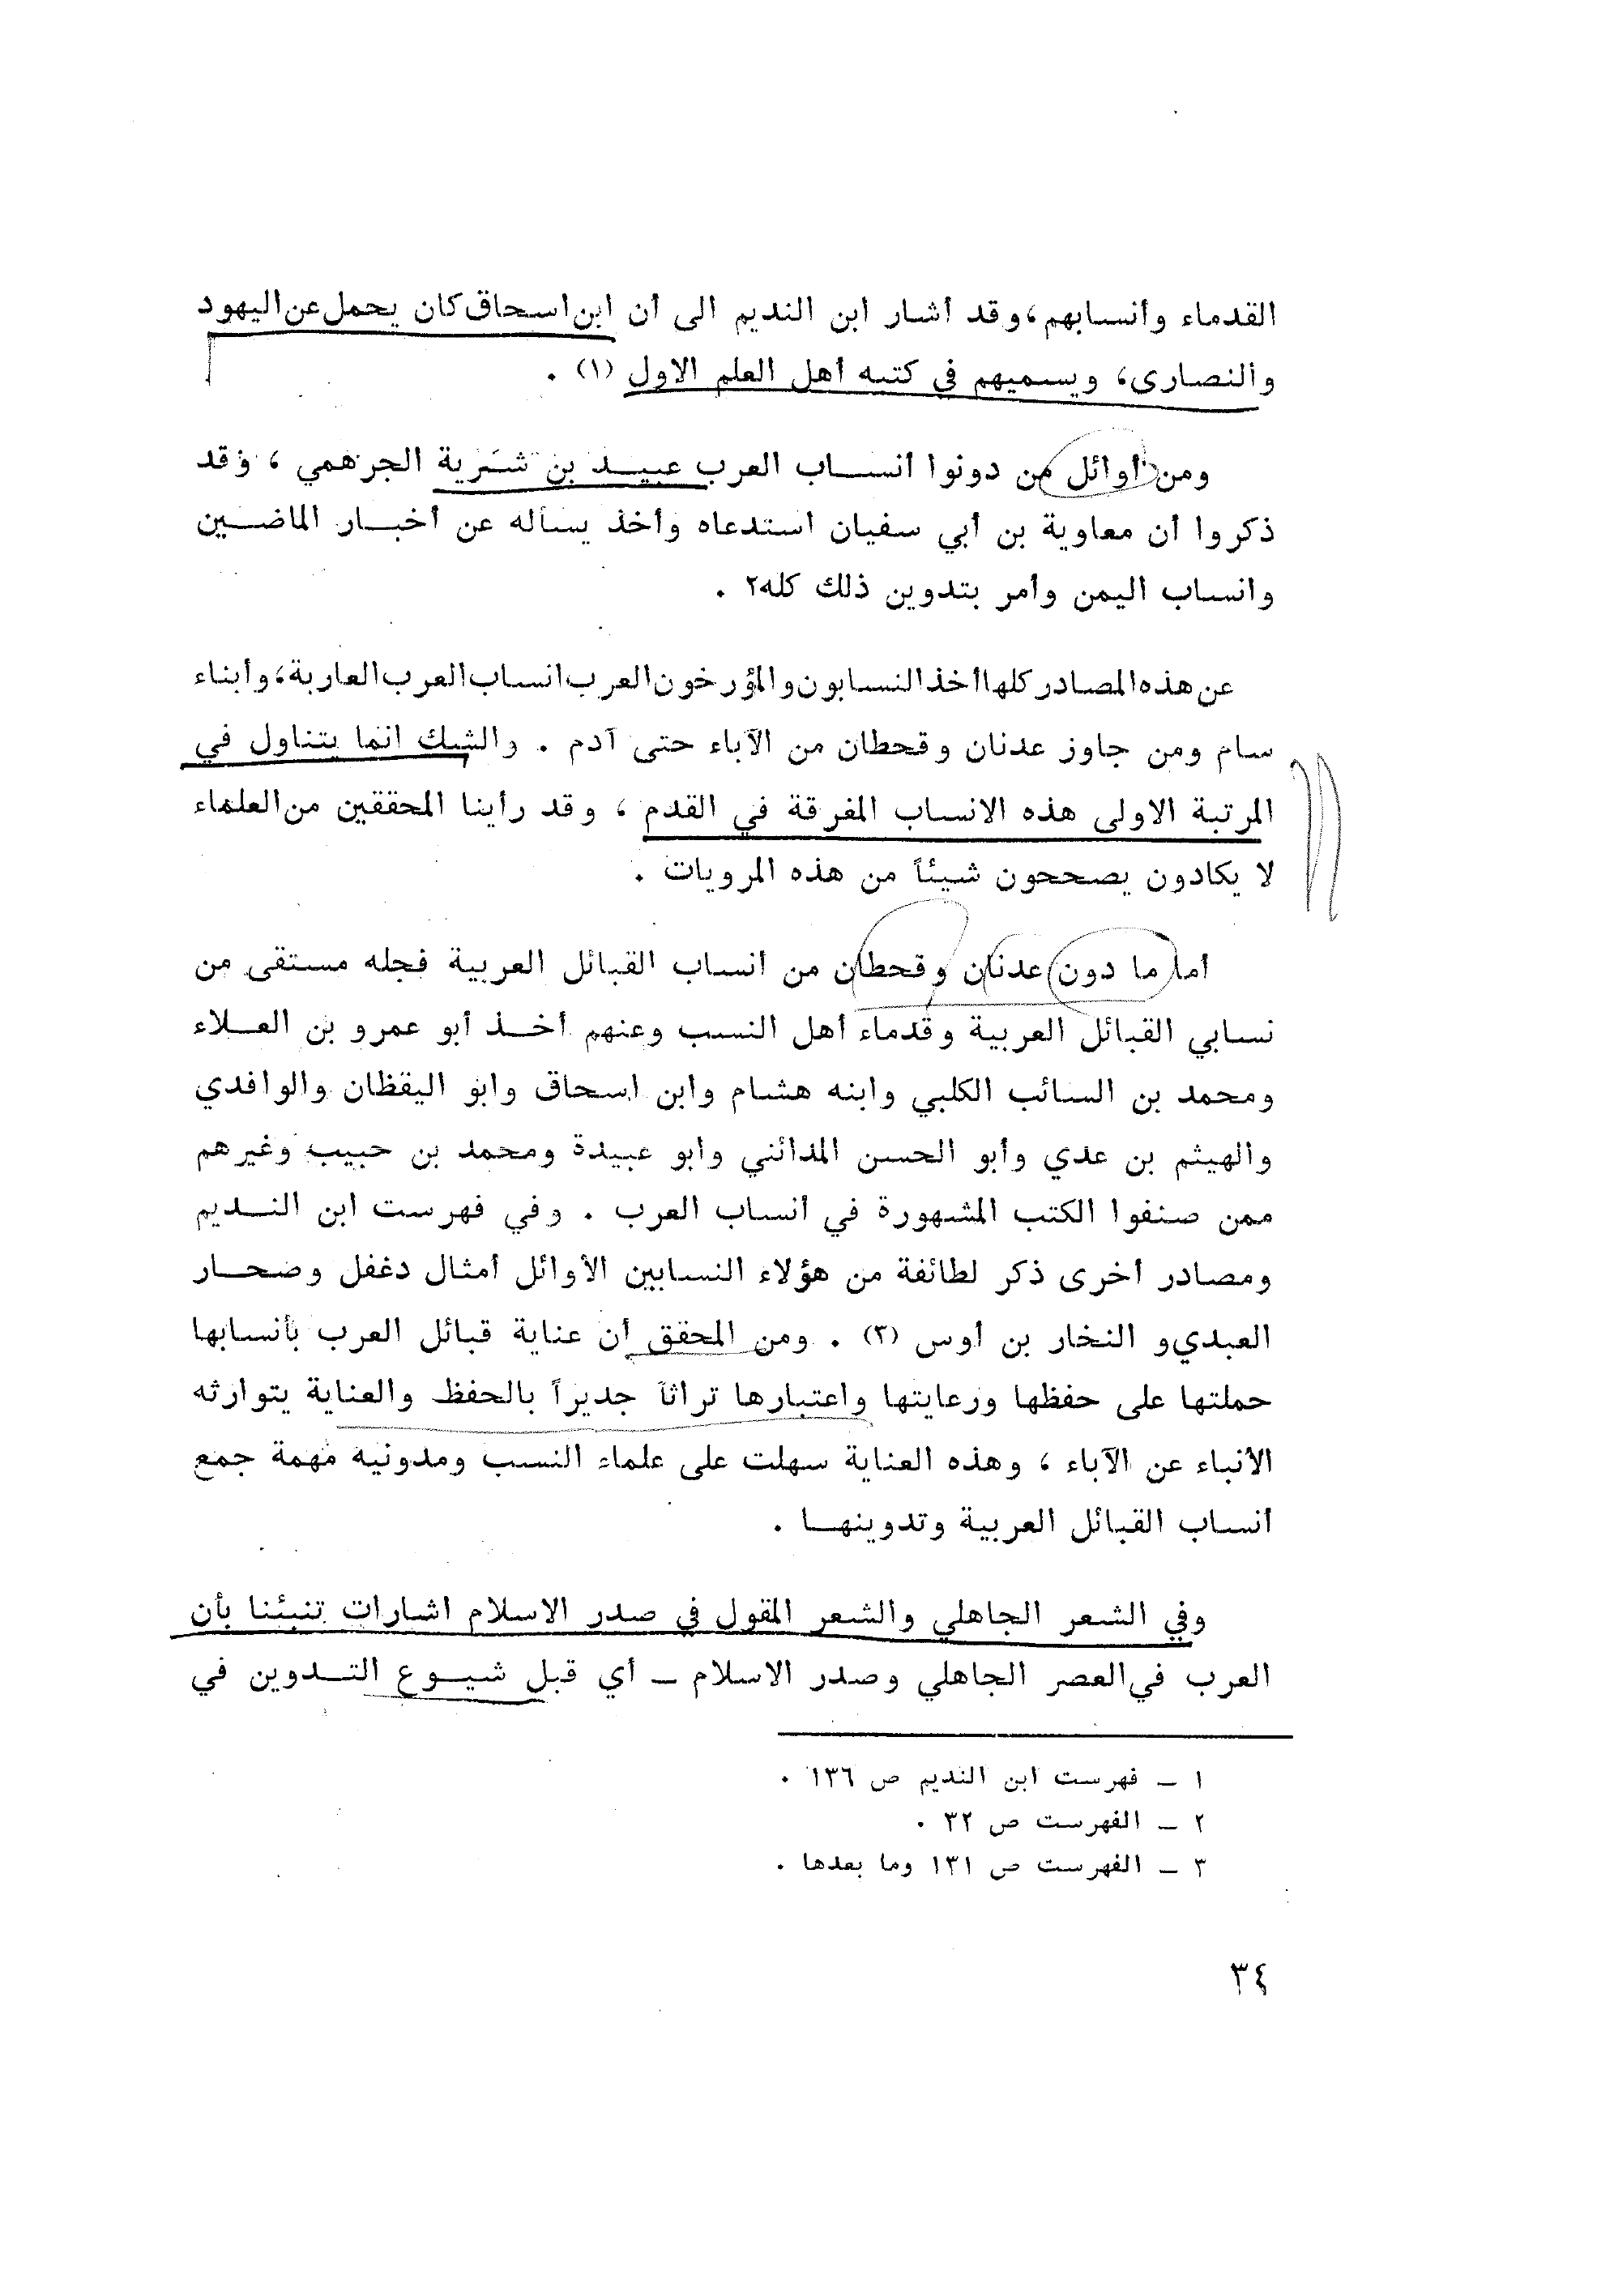 القدماء وأنسابهم، وقد أشار ابن النديم الى أن ابن اسحاق كان يحمل عن اليهود
والنصارى، ويسميهم في كتبه أهل العلم الاول (١) .
ومن أوائل من دونوا أنســاب العرب عبيــد بن شَرية الجرهمي ، وقد
ذكروا أن معاوية بن أبي سفيان استدعاه وأخذ يسأله عن أخبــار الماضــين
وانساب اليمن وأمر بتدوين ذلك كله٢ .
عن هذه المصادر كلها أخذ النسابون والمؤرخون العرب انساب العرب العاربة، وأبناء
سام ومن جاوز عدنان وقحطان من الآباء حتى آدم . والشك انما يتناول في
المرتبة الاولى هذه الانساب المغرقة في القدم ، وقد رأينا المحققين من العلماء
لا يكادون يصححون شيئاً من هذه المرويات .
أما ما دون عدنان وقحطان من أنساب القبائل العربية فجله مستقى من
نسابي القبائل العربية وقدماء أهل النسب وعنهم أخــذ أبو عمرو بن العــلاء
ومحمد بن السائب الكلبي وابنه هشام وابن اسحاق وابو اليقظان والوافدي
والهيثم بن عدي وأبو الحسن المدائني وابو عبيدة ومحمد بن حبيب وغيرهم
ممن صنفوا الكتب المشهورة في أنساب العرب . وفي فهرست ابن النــديم
ومصادر أخرى ذكر لطائفة من هؤلاء النسابين الأوائل أمثال دغفل وصحــار
العبدي و النخار بن أوس (٣) . ومن المحقق أن عناية قبائل العرب بأنسابها
حملتها على حفظها ورعايتها واعتبارها تراثاً جديراً بالحفظ والعناية يتوارثه
الأنباء عن الآباء ، وهذه العناية سهلت على علماء النسب ومدونيه مهمة جمع
أنساب القبائل العربية وتدوينهــا .
وفي الشعر الجاهلي والشعر المقول في صدر الاسلام اشارات تنبئنا بأن
العرب في العصر الجاهلي وصدر الاسلام ـ أي قبل شيــوع التــدوين في
١ ـ فهرست ابن النديم ص ١٣٦ .
٢ ـ الفهرست ص ٣٢ .
٣ ـ الفهرست ص ١٣١ وما بعدها .
٣٤